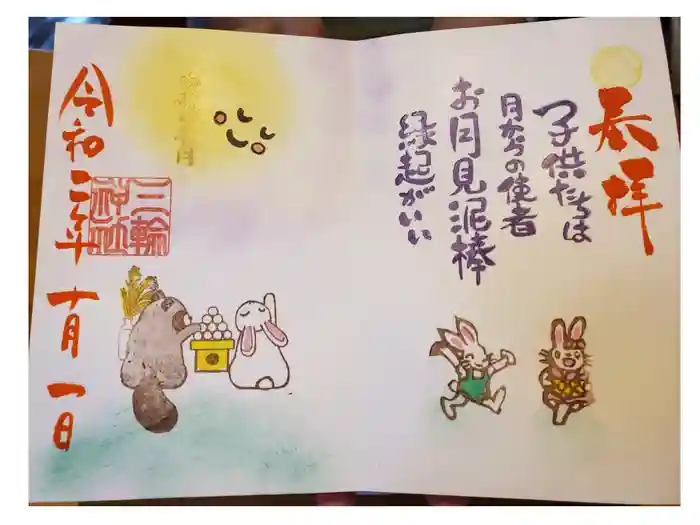 奉拝
子供たちは
月からの使者
お月見泥棒
縁起がいい
三輪
神社
令和二年十月一日